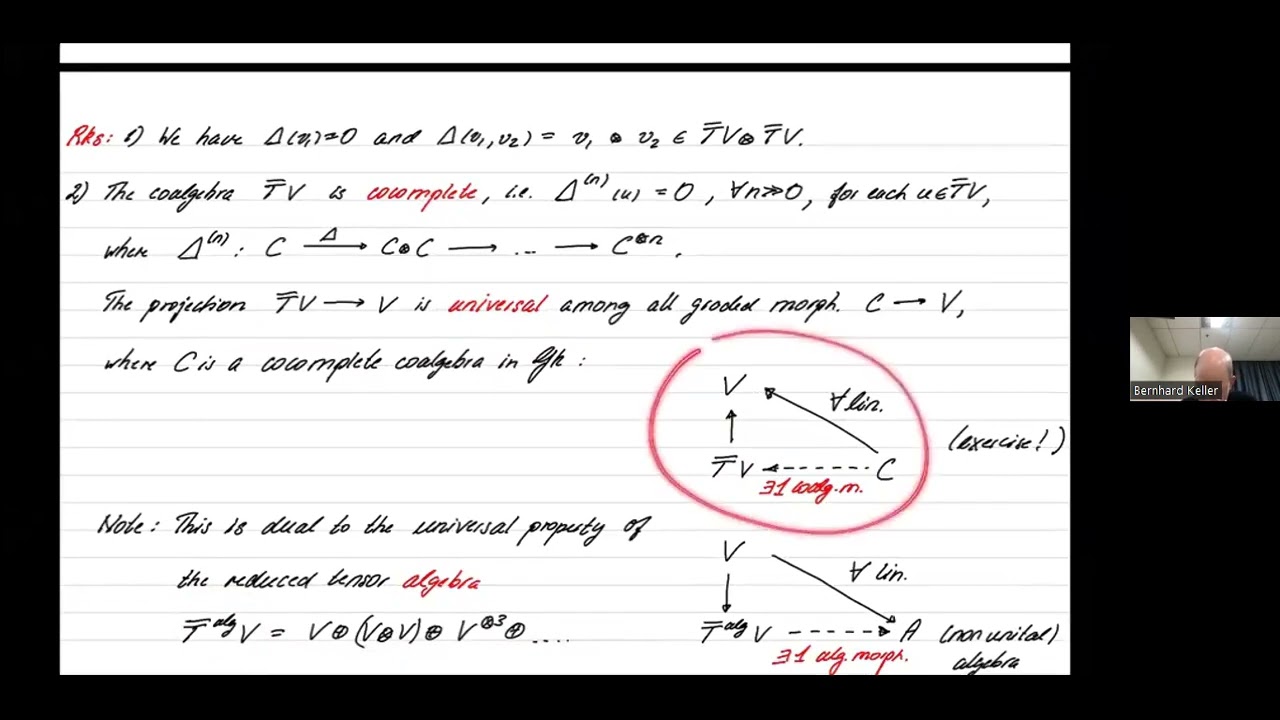 Rks: 1) We have Δ(v₁)=0 and Δ(v₁,v₂) = v₁ ⊗ v₂ ∈ T̄V⊗T̄V.
2) The coalgebra T̄V is cocomplete, i.e. Δ⁽ⁿ⁾(u) = 0, ∀n≫0, for each u∈T̄V,
where Δ⁽ⁿ⁾: C —Δ→ C⊗C → ... → C^⊗n.
The projection T̄V → V is universal among all graded morph. C → V,
where C is a cocomplete coalgebra in Grk:
V
∀ lin.
T̄V C (exercise!)
∃1 coalg. m.
Note: This is dual to the universal property of
the reduced tensor algebra
T̄^alg V = V⊕(V⊗V)⊕ V^⊗3⊕....
V
∀ lin.
T̄^alg V A (non unital)
∃1 alg. morph. algebra
Bernhard Keller